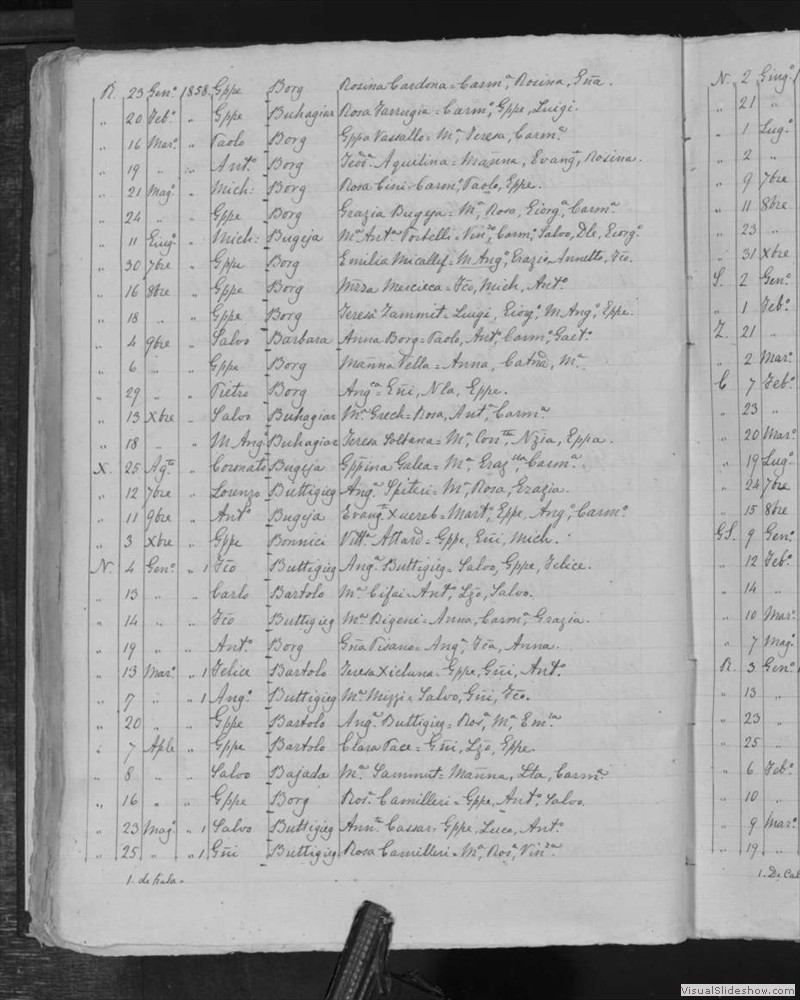 R. 23 Genº 1858 Gppe Borg Rosina Cardona = Carmª, Rosina, Gña.
" 20 Febº " Gppe Buhagiar Rosa Farrugia = Carmº, Gppe, Luigi.
" 16 Marº " Paolo Borg Gppa Vassallo = Mª, Teresa, Carmª
" 19 " " Antº Borg Aquilina = Mañna, Evangª, Rosina.
" 21 Magº " Mich: Borg Rosa Cini = Carmº, Paolo, Gppe.
" 24 " " Gppe Borg Grazia Bugeja = Mª, Rosa, Giorgª, Carmª
" 11 Giugº " Mich: Bugeja Mª Antª Portelli = Carmº, Salvo, Giorgº
" 30 7bre " Gppe Borg Emilia Micallef = M. Angº, Grazia, Annetto, Fcº.
" 16 8bre " Gppe Borg Mercieca = Fcº, Mich, Antº
" 18 " " Gppe Borg Teresi Zammit = Luigi, Giorgº, M Angº, Gppe.
" 4 9bre " Salvo Barbara Anna Borg = Paolo, Antº, Carmº, Gaetº
" 6 " " Gppe Borg Mañna Vella = Anna, Catña, Mª
" 29 " " Pietro Borg Angª = Gñi, Nla, Gppe.
" 13 Xbre " Salvo Buhagiar Mª Grech = Rosa, Antº, Carmª
" 18 " " M Angº Buhagiar Teresa Soltana = Mª, Nzia, Gppa.
X. 25 Agto " Coronato Bugeja Gppina Galea = Mª, Grazia, Carmª.
" 12 7bre " Lorenzo Buttigieg Angª Spiteri = Mª, Rosa, Grazia.
" 11 9bre " Antº Bugeja Evangª Xuereb = Martº, Gppe, Angº, Carmº
" 3 Xbre " Gppe Bonnici Vittª Attard = Gppe, Gñi, Mich.
N. 4 Genº " 1 Fcº Buttigieg Angª Buttigieg = Salvo, Gppe, Felice.
" 13 " " Carlo Bartolo Mª Cifai = Antº, Lzo, Salvo.
" 14 " " Fcº Buttigieg Mª Bigeni = Anna, Carmª, Grazia.
" 19 " " Antº Borg Gña Pisano = Angª, Fca, Anna.
" 13 Marº " 1 Felice Bartolo Teresa Xicluna = Gppe, Gñi, Antº
" 7 " " 1 Angº Buttigieg Mª Mizzi = Salvo, Gñi, Fcº.
" 20 " " Gppe Bartolo Angª Buttigieg = Rosª, Mª, Emla
" 7 Aple " Gppe Bartolo Clara Pace = Gñi, Lzo, Gppe.
" 8 " " Salvo Bajada Mª Sammut = Mañna, Lta, Carmª
" 16 " " Gppe Borg Rosª Camilleri = Gppe, Antº, Salvo.
" 23 Magº " 1 Salvo Buttigieg Annª Cassar = Gppe, Luca, Antº
" 25 " " 1 Gñi Buttigieg Rosa Camilleri = Mª, Rosª, Vinza
N. 2 Giugº
" 21 "
" 1 Lugº
" 2 "
" 9 7bre
" 11 8bre
" 23 "
" 31 Xbre
S. 2 Genº
" 1 Febº
Z. 21 "
" 2 Marº
C 7 Febº
" 23 "
" 20 Marº
" 19 Lugº
" 24 7bre
" 15 8bre
GS. 9 Genº
" 12 Febº
" 14 "
" 10 Marº
" 7 Magº
R. 3 Genº
" 13 "
" 23 "
" 25 "
" 6 Febº
" 10 "
" 9 Marº
" 19 "
1. De Cal
VisualSlideshow.com